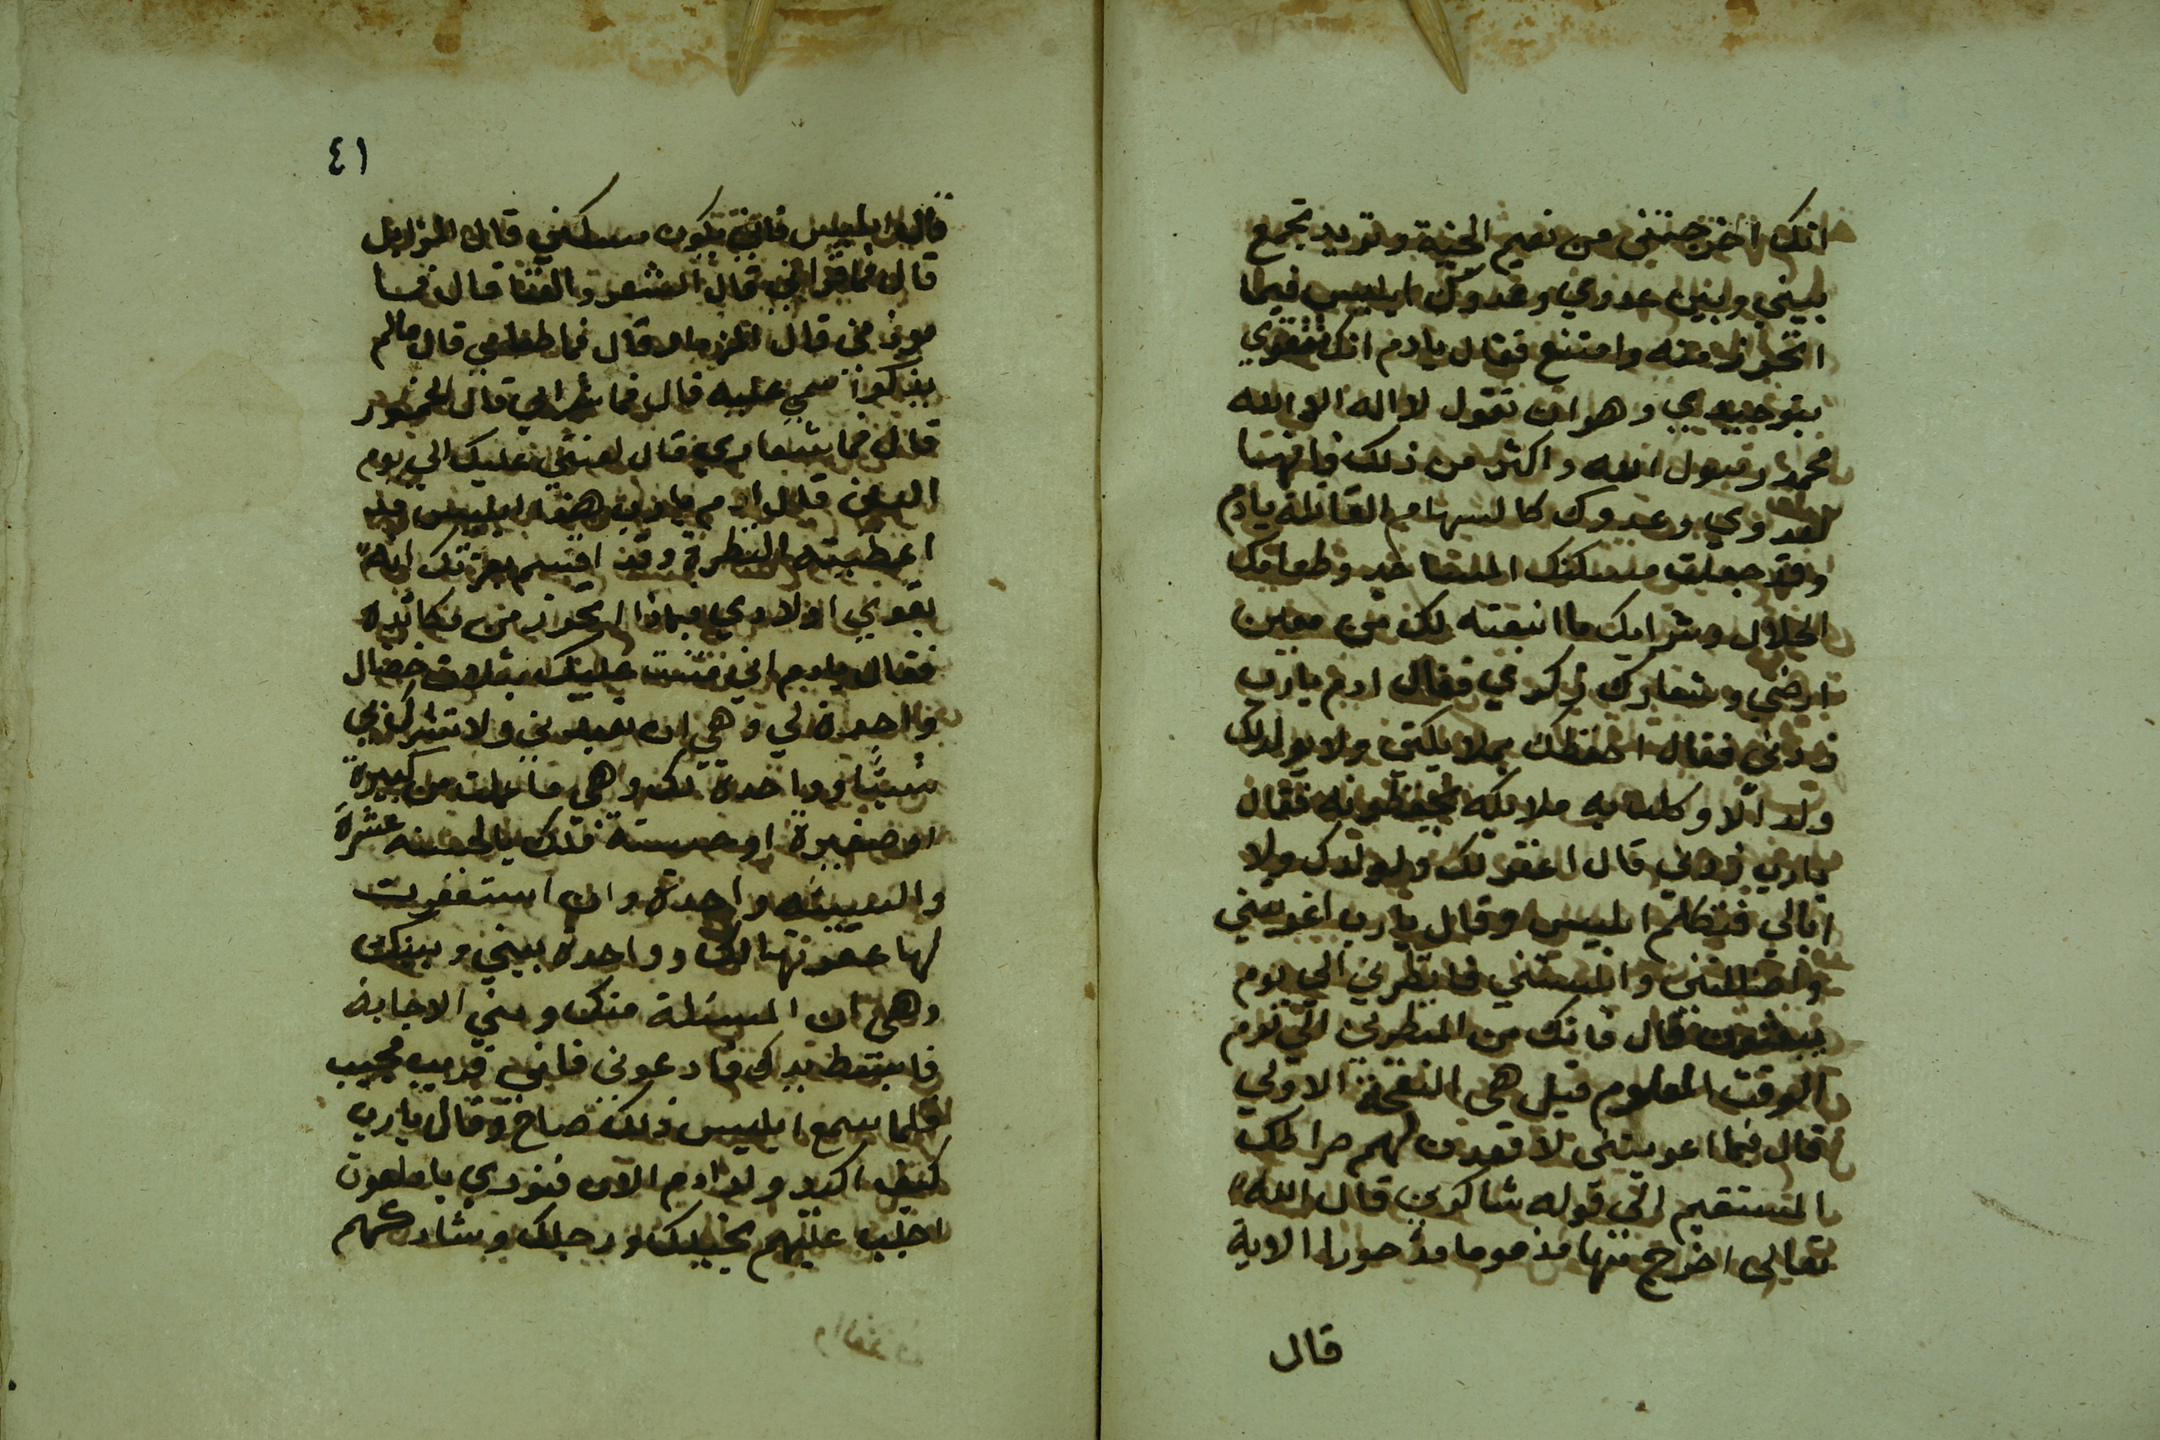 انك اخرجتنى من نعيم الجنة وتريد تجمع
بيني وبين عدوي وعدوك ابليس فبما
اتحرز منه وامتنع فقال يادم انك تتقوي
بتوحيدي وهو ان تقول لا اله الا الله
محمد رسول الله واكثر من ذلك فانهما
لعدوي وعدوك كالسهام القاتلة يادم
وقد جعلت مسكنك المساجد وطعامك
الحلال وشرابك ما انبعته لك من معين
ارضي وشعارك ذكري فقال ادم يارب
زدني فقال احفظك بملايكتى ولا يولد لك
ولد الّا وكلت به ملايكه يحفظونه فقال
يارب زدني قال اغفر لك ولولدك ولا
ابالي فتكلم ابليس وقال يارب اغويتني
واضللتنى وابلستني فانظرني الي يوم
يبعثون قال فانك من المنظرين الى يوم
الوقت المعلوم قيل هى النفخة الاولي
قال فبما اغويتنى لاقعدن لهم صراطك
المستقيم الى قوله شاكرين قال الله
تعالى اخرج منها مذموما مدحورا الاية
قال
٤١
قال ابليس فاين يكون مسكني قال المزابل
قال فما قراني قال الشعر والغنا قال فما
موذني قال المزمار قال فما طعامي قال مالم
يذكر اسمي عليه قال فما شرابي قال الخمور
قال فما شعاري قال لعنتي عليك الي يوم
الدين قال ادم يارب هذا ابليس قد
اعطيته النظرة وقد اقسم بعزتك انه
يغوي اولادي فبماذا احترز من مكائده
فقال يادم اني مننت عليك بثلاث خصال
واحدة لي وهي ان تعبدني ولا تشرك بي
شيئًا وواحدة لك وهي ما عملت من كبيرة
او صغيرة او حسنة فلك بالحسنه عشرة
والسيئه واحدة وان استغفرت
لها غفرتها لك وواحدة بيني وبينك
وهى ان المسئلة منك ومني الاجابة
فابسط يدك فادعوني فاني قريب مجيب
فلما سمع ابليس ذلك صاح وقال يارب
كيف اكيد ولد ادم الان فنودي ياملعون
اجلب عليهم بخيلك ورجلك وشاركهم